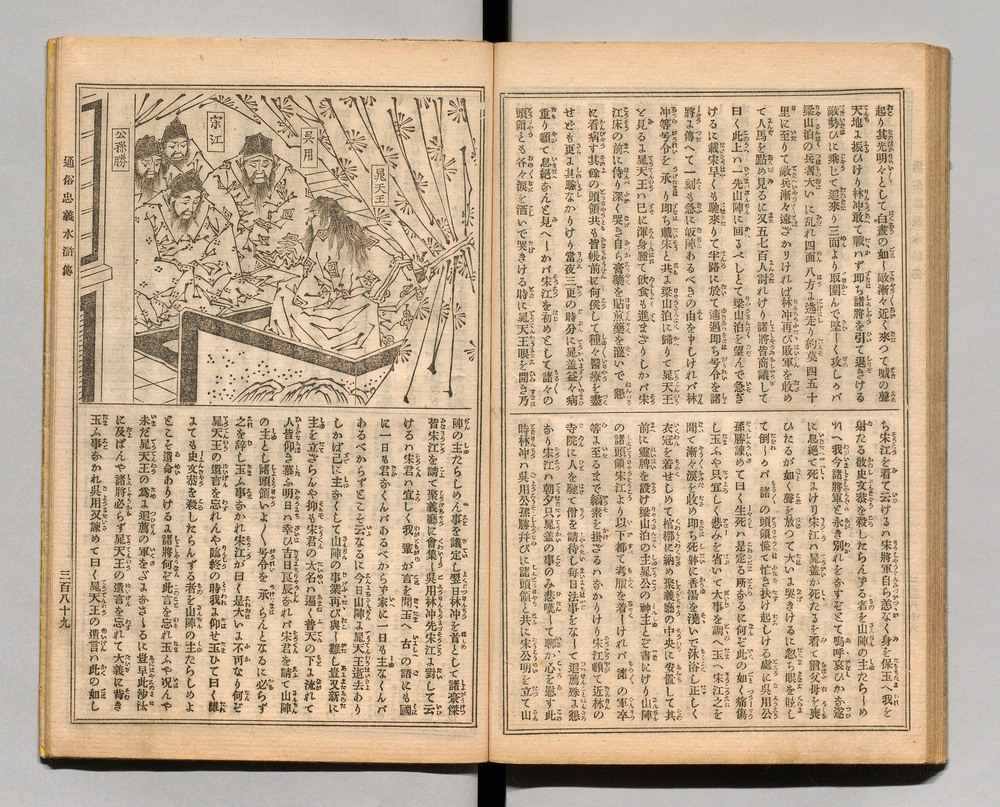 起り其光明々として白晝の如し敵漸々近く來つて喊の聲
天地よ振ひけり林冲敢て戰ハず即ち諸將を引て退きける
敵勢ひに乘じて追來り三面より取圍んで堅しく攻しかバ
梁山泊の兵者大いに乱れ四面八方よ逃走り約莫四五十
里に至りて敵兵漸々遠ざかりけれバ林冲再び敗軍を收め
て人馬を點め見るに又五七百人討れけり諸將皆商議して
曰く此上ハ一先山陣に回るべしとて梁山泊を望んで急ぎ
けるに戴宋早くも馳來りて半路に於て適遇即ち号令を諸
將よ傳へて一刻も急に皈陣あるべきの由を申しけれバ林
冲等号令を承り即ち戴宋と共よ梁山泊に歸りて晁天王
を見るよ晁天王ハ已に渾身腫て飲食も進まざりしかバ宋
江床の前に侍り深く哭き自ら膏藥を貼煎藥を灌いで懇
に看病す其餘の頭領共も皆帳前に伺侯して種々醫療を盡
せども更よ其驗なかりけり當夜三更の時分に晁盖益々病
重り頓て息絕なんと見へしかバ宋江を初めとして諸々の
頭領とも各々淚を洒いで哭きける時に晁天王眼を開き乃
ち宋江を看て云けるハ宋將軍自ら恙なく身を保玉へ我を
射たる彼史文恭を殺したらん者を山陣の主たらしめ
玉へ我今諸將軍と永き別れをなすぞとて嗚呼哀ひかな遂
に息絕て死よけり宋江ハ晁盖が死たるを看て猶父母を喪
ひたるが如く聲を放つて大いよ哭きけるに忽ち眼を眩し
て倒しかバ諸の頭領慌て忙き扶け起しける處に呉用公
孫勝諫めて曰く生死ハ是定る所なるに何ぞ此の如く痛傷
し玉ふや只宜しく悲みを省いて大事を調へ玉へ宋江之を
聞て漸々淚を收め即ち死骸に香湯を澆いで沐浴し正しく
衣冠を着せしめて棺槨に納め聚義廳の中央に安置して其
前に靈牌を設け梁山泊の主晁公の神主とぞ書にけり山陣
の諸頭領宋江より以下都て孝服を着しけれバ諸の軍卒
等よ至るまで縞素を掛ざるハなかりけり宋江頓て近林の
寺院に人を馳て僧を請待し毎日法事をなして追薦殊よ懇
なり宋江ハ朝夕只晁盖の事のみ悲嘆して聊か心を慰す此
時林冲ハ呉用公孫勝并びに諸頭領と共に宋公明を立て山
公孫勝
宋江
呉用
晁天王
通俗忠義水滸傳
陣の主たらしめん事を議定し翌日林冲を首として諸豪傑
皆宋江を請て聚義廳に會集し呉用林冲先宋江よ對して云
けるハ宋君ハ宜しく我輩が言を聞玉へ古の語にも國
に一日も君なくんバあるべからず家に一日も主なくんバ
あるべからずとこそ云なるに今日山陣よ晁天王逝去あり
しかば已に主なくして山陣の事業再び興し難し豈又新に
主を立ざらんや抑も宋君の大名ハ遍く普天の下よ流れて
人皆仰き慕ふ明日ハ幸ひ吉日良辰なれバ宋君を請て山陣
の主とし諸頭領いよく号令を承らんとなるに必らず
之を辞し玉ふ事なかれ宋江が曰く是大いよ不可なり何ぞ
晁天王の遺言を忘れんや臨終の時我よ仰せ玉ひて曰く誰
よても史文恭を殺したらんずる者を山陣の主たらしめよ
とこそ遺命ありけるよ諸將何ぞ此言を忘れ玉ふや况んや
未だ晁天王の爲よ追薦の軍をなさざるに豈早此沙汰
に及ばんや諸將必らず晁天王の遺言を忘れて大義に背き
玉ふ事なかれ呉用又諫めて曰く晁天王の遺言ハ此の如し
三百八十九